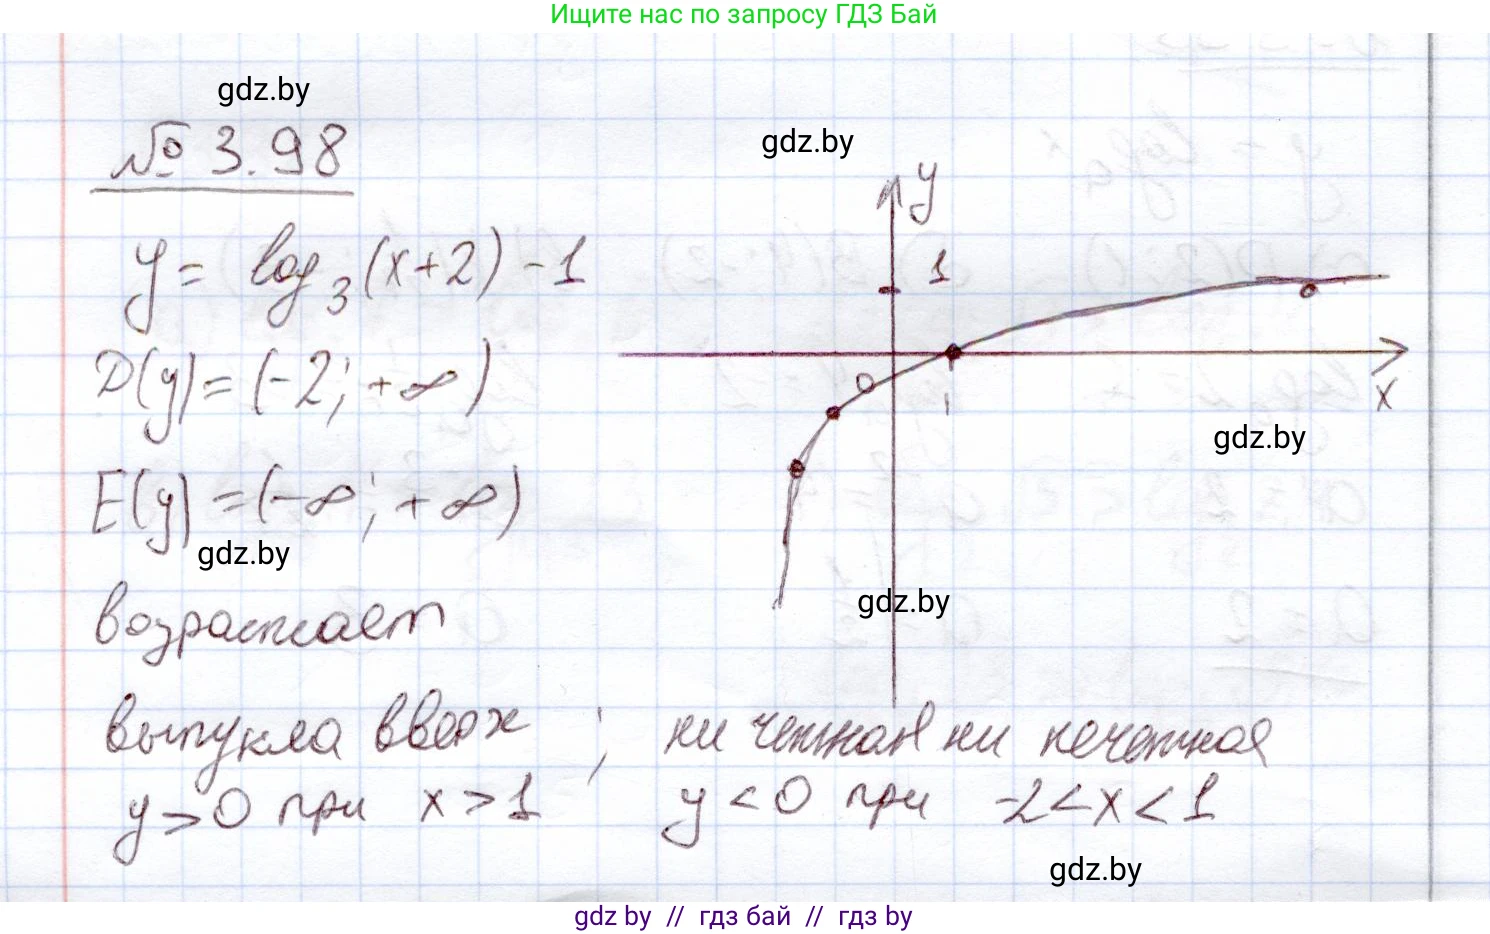 Ищите нас по запросу ГДЗ Бай
gdz.by
№ 3.98
gdz.by
y
y = log₃(x+2) - 1
1
D(y) = (-2; +∞)
0
1
x
gdz.by
E(y) = (-∞; +∞)
gdz.by
возрастает
gdz.by
выпукла вверх ; ни четная ни нечетная
y > 0 при x > 1 y < 0 при -2 < x < 1
gdz.by
gdz by // гдз бай // гдз by